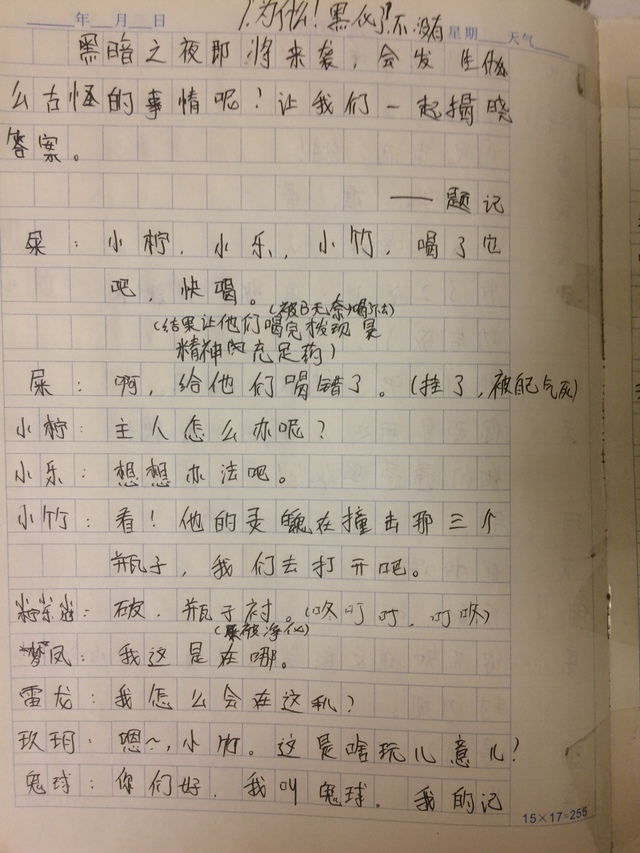 年 月 日 星期 天气
为什么!黑化!不没有
黑暗之夜即将来袭,会发生什
么古怪的事情呢!让我们一起揭晓
答案。
——题记
屎:小柠,小乐,小竹,喝了它
吧,快喝。(被B无奈喝下去)
(结果让他们喝完发现是
精神肉充足药)
屎:啊,给他们喝错了。(挂了,被自己气死)
小柠:主人怎么办呢?
小乐:想想办法吧。
小竹:看!他的灵魂在撞击那三个
瓶子,我们去打开吧。
柠乐竹:破,瓶子衬。(咚叮叮,叮咚)
(屎被净化)
梦凤:我这是在哪。
雷龙:我怎么会在这儿?
玖玥:嗯~,小竹。这是啥玩儿意儿?
鬼球:你们好,我叫鬼球。我的记
15×17=255